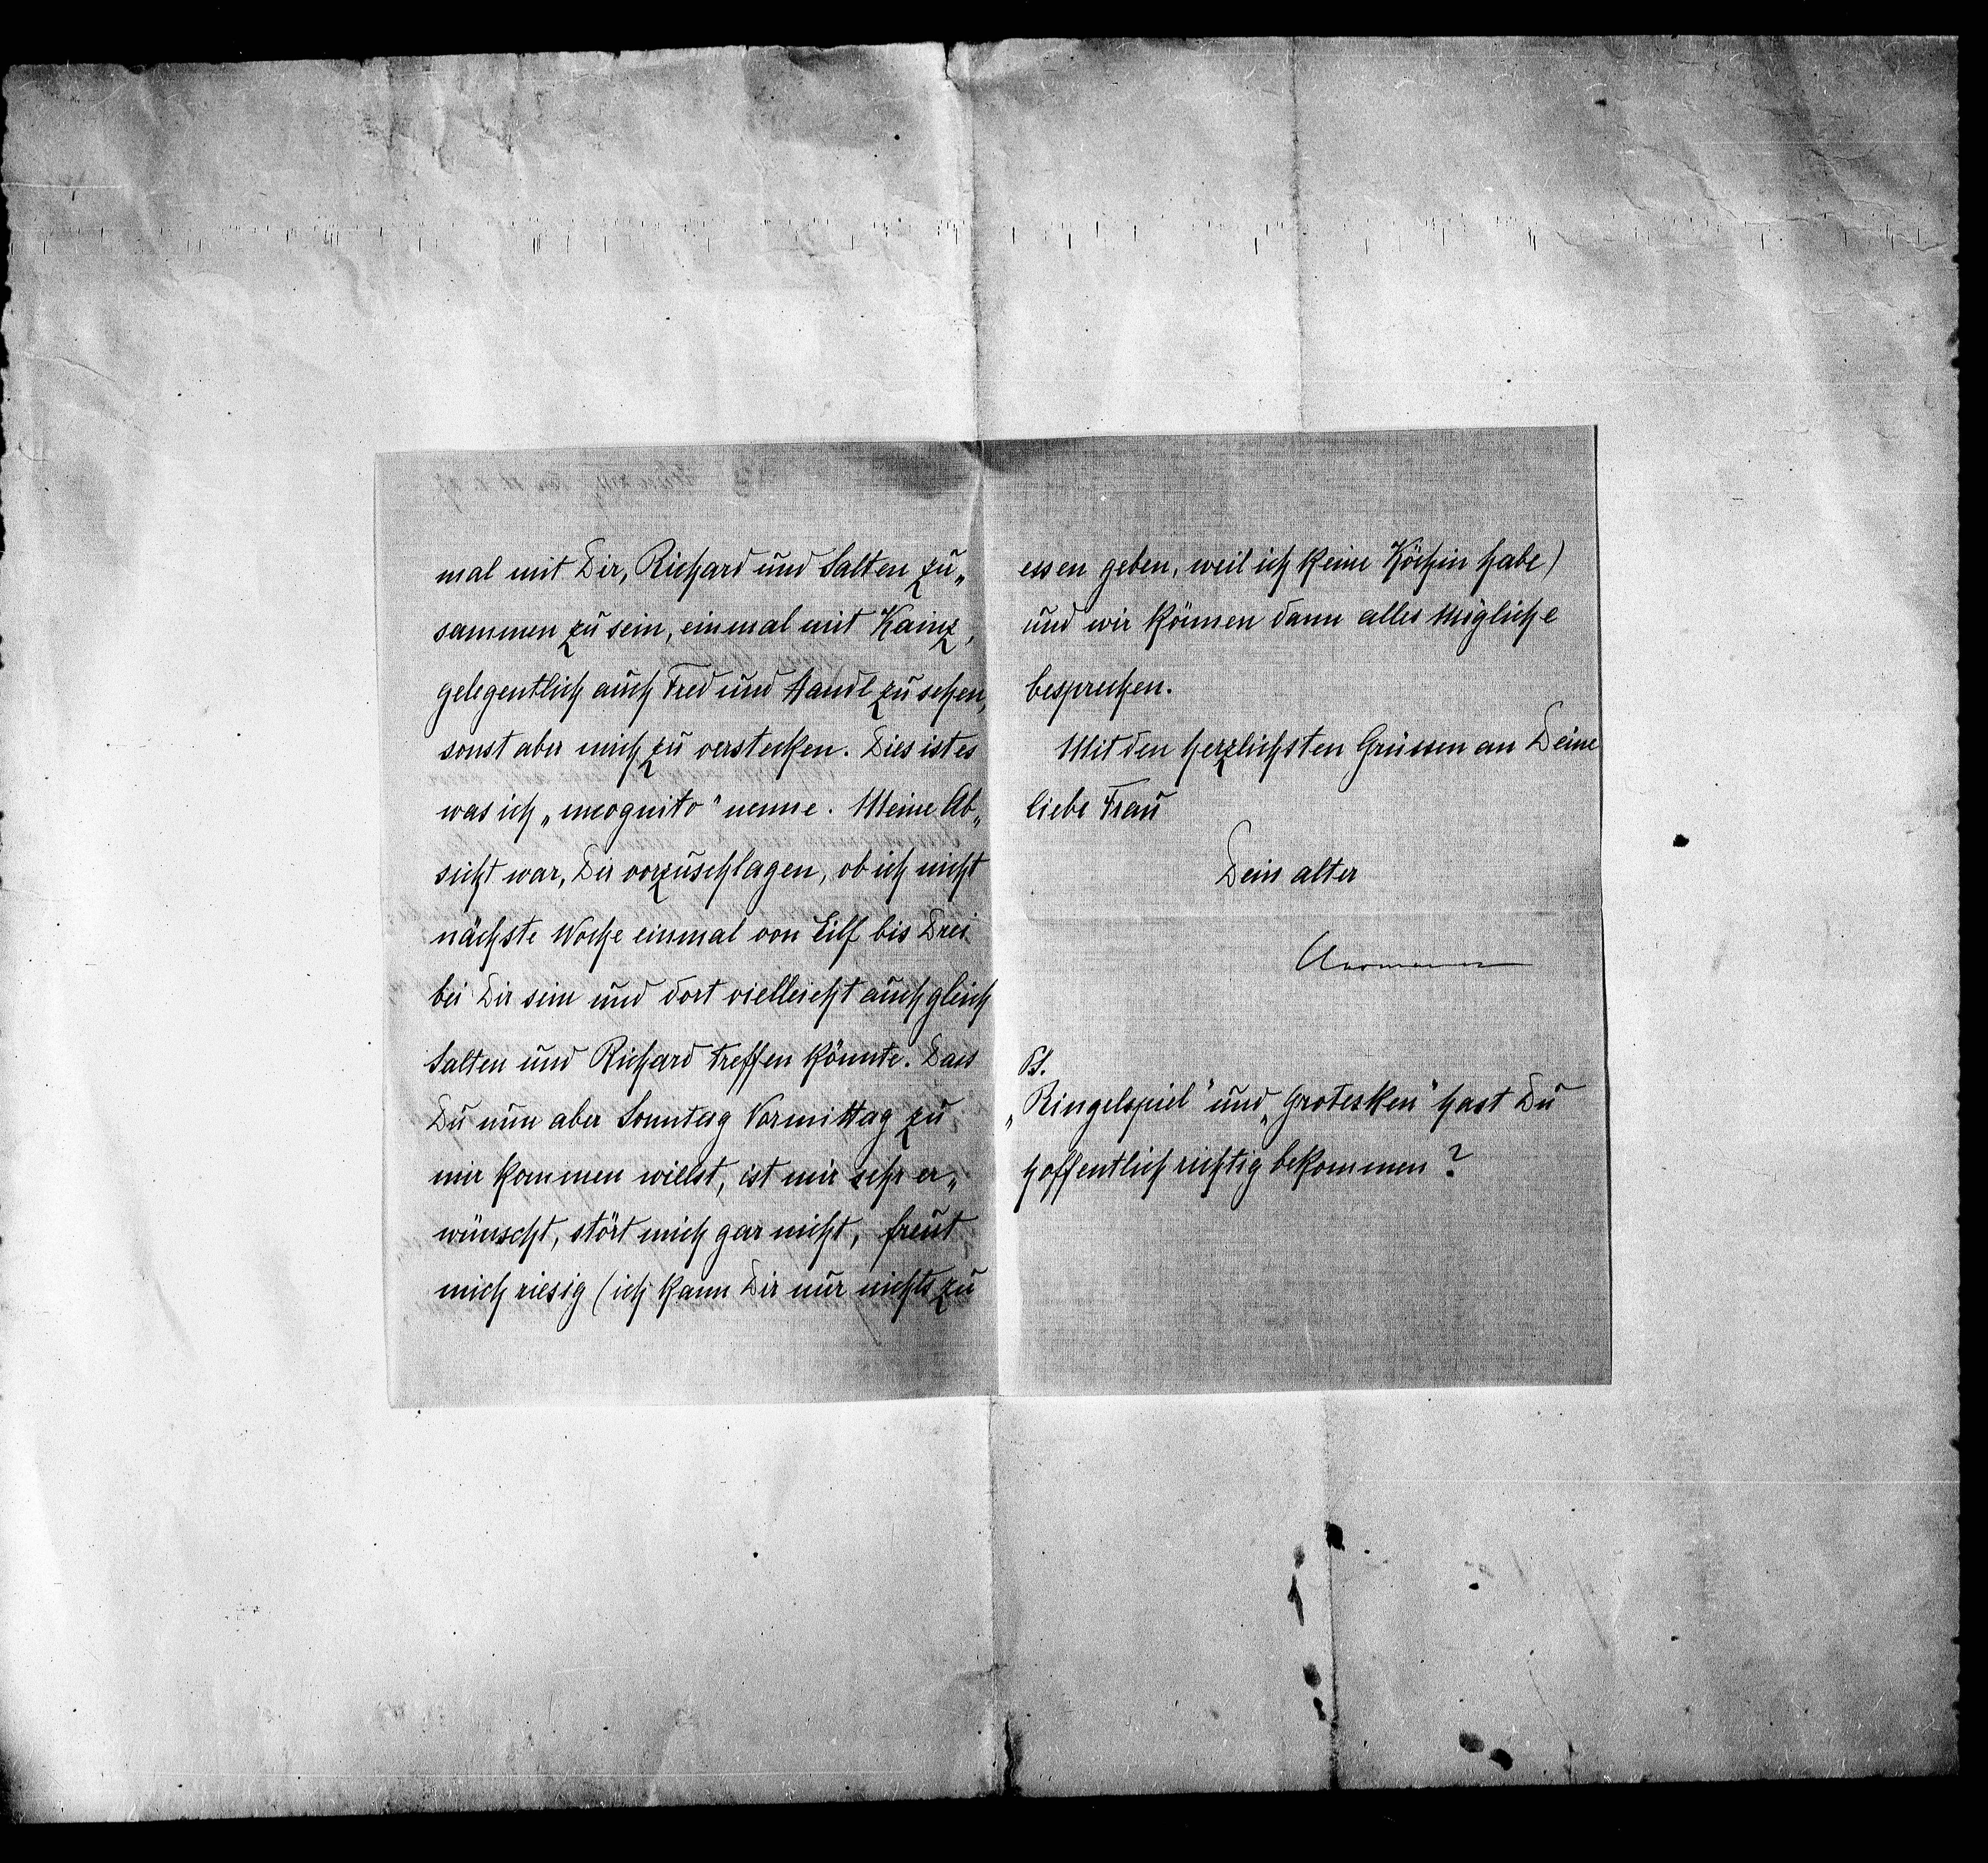 mal mit Dir, Richard und Salten zu„
sammen zu sein, einmal mit Kainz,
gelegentlich auch Fred und Handl zu sehen,
sonst aber mich zu verstecken. Dies ist es
was ich „incognito“ nenne. Meine Ab„
sicht war, Dir vorzuschlagen, ob ich nicht
nächste Woche einmal von Eilf bis Drei
bei Dir sein und dort vielleicht auch gleich
Salten und Richard treffen könnte. Dass
Du nun aber Sonntag Vormittag zu
mir kommen willst, ist mir sehr er„
wünscht, stört mich gar nicht, freut
mich riesig (ich kann Dir nur nichts zu
essen geben, weil ich keine Köchin habe)
und wir können dann alles mögliche
besprechen.
Mit den herzlichsten Grüssen an Deine
liebe Frau
Dein alter
Hermann
PS.
„Ringelspiel“ und „Grotesken“ hast Du
hoffentlich richtig bekommen?